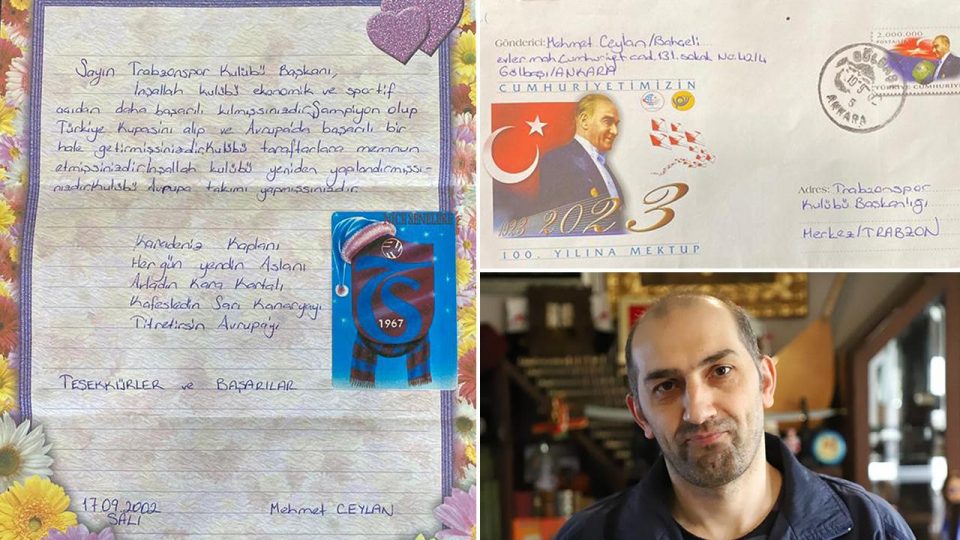 Sayın Trabzonspor Kulübü Başkanı,
İnşallah kulübü ekonomik ve sportif
açıdan daha başarılı kılmışsınızdır. Şampiyon olup
Türkiye Kupasını alıp ve Avrupa'da başarılı bir
hale getirmişsinizdir. Kulübü taraftarlara memnun
etmişsinizdir. İnşallah kulübü yeniden yapılandırmışsı-
nızdır. Kulübü Avrupa takımı yapmışsınızdır.
Karadeniz Kaplanı
Her gün yendin Aslanı
Avladın Kara Kartalı
Kafesledin Sarı Kanaryayı
Titretirsin Avrupayı
TS
1967
TEŞEKKÜRLER ve BAŞARILAR
17.09.2002
SALI
Mehmet CEYLAN
Gönderici: Mehmet Ceylan/Bahçeli
evler mah. Cumhuriyet cad. 131. sokak No:42/4
Gölbaşı/ANKARA
CUMHURİYETİMİZİN
1923 2023
100. YILINA MEKTUP
2.000.000
GÖLBAŞI
ANKARA
Adres: Trabzonspor
Kulübü Başkanlığı
Merkez/TRABZON